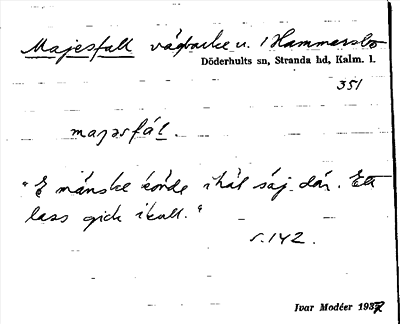 Majesfall vägbacke u. Hammersbo
Döderhults sn, Stranda hd, Kalm. l.
351
majəsfál.
"E mänske körde ihäl säj där. Ett
lass gick ikull."
s.142.
Ivar Modéer 1937